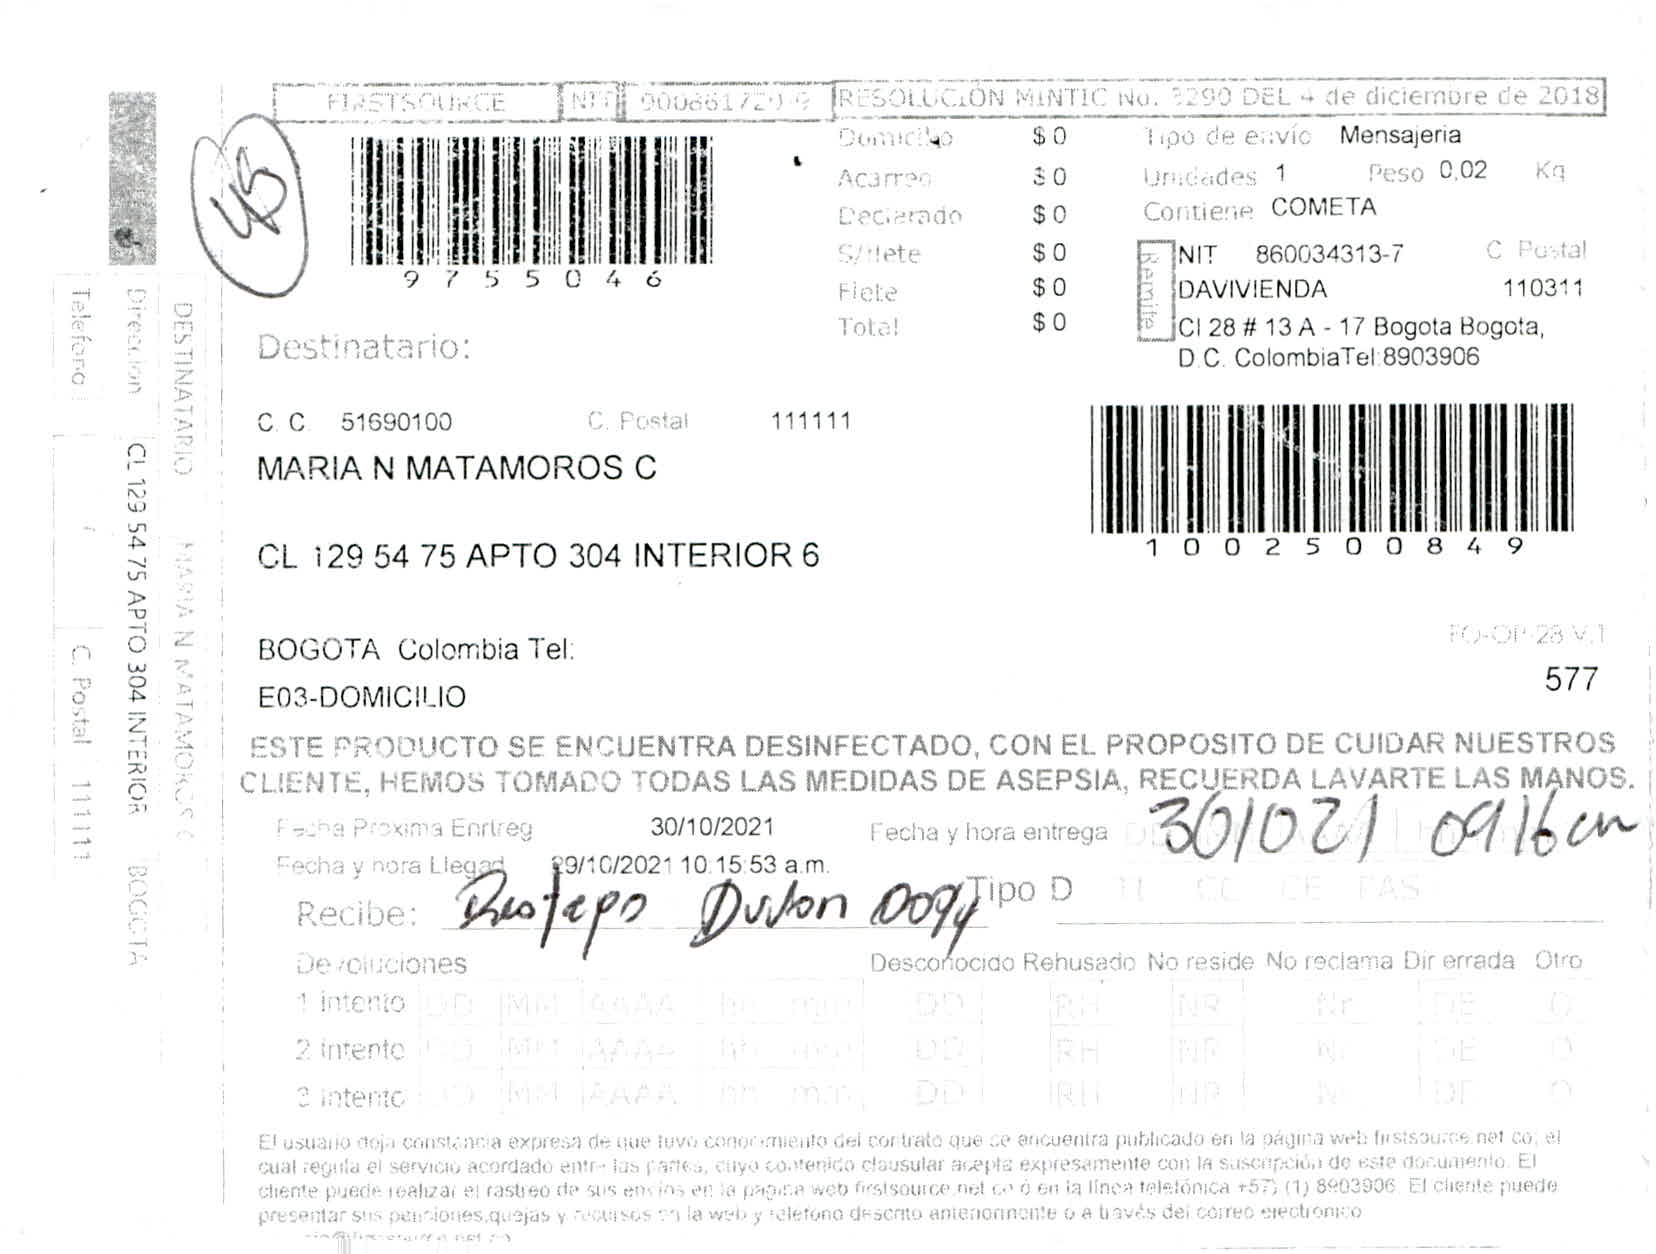 FIRSTSOURCE NIT 900661729-9 RESOLUCIÓN MINTIC No. 3290 DEL 4 de diciembre de 2018
45
9755046
Domicilio $ 0
Acarreo $ 0
Declarado $ 0
S/flete $ 0
Flete $ 0
Total $ 0
Tipo de envío Mensajeria
Unidades 1 Peso 0,02 Kq
Contiene COMETA
Remite
NIT 860034313-7 C Postal
DAVIVIENDA 110311
Cl 28 # 13 A - 17 Bogota Bogota,
D.C. ColombiaTel:8903906
Destinatario:
C. C. 51690100 C. Postal 111111
MARIA N MATAMOROS C
1002500849
CL 129 54 75 APTO 304 INTERIOR 6
BOGOTA Colombia Tel:
FO-OP-28 V.1
577
E03-DOMICILIO
ESTE PRODUCTO SE ENCUENTRA DESINFECTADO, CON EL PROPOSITO DE CUIDAR NUESTROS
CLIENTE, HEMOS TOMADO TODAS LAS MEDIDAS DE ASEPSIA, RECUERDA LAVARTE LAS MANOS.
Fecha Proxima Enrtreg 30/10/2021 Fecha y hora entrega
Fecha y hora Llegad 29/10/2021 10:15:53 a.m.
Recibe: Tipo D TI CC CE PAS
Devoluciones Desconocido Rehusado No reside No reclama Dir errada Otro
1 intento DD MM AAAA hh mm DD RH NR Nr DE O
2 intento DD MM AAAA hh mm DD RH NR Nr DE O
3 intento DD MM AAAA hh mm DD RH NR Nr DE O
El usuario deja constancia expresa de que tuvo conocimiento del contrato que se encuentra publicado en la página web firstsource.net.co, el
cual regula el servicio acordado entre las partes, cuyo contenido clausular acepta expresamente con la suscripción de este documento. El
cliente puede realizar el rastreo de sus envíos en la pagina web firstsource.net.co ó en la línea telefónica +57) (1) 8903906. El cliente puede
presentar sus peticiones,quejas y recursos en la web y telefono descrito anteriormente o a través del correo electronico
DESTINATARIO MARIA N MATAMOROS C
Direccion CL 129 54 75 APTO 304 INTERIOR BOGOTA
Telefono C. Postal 111111